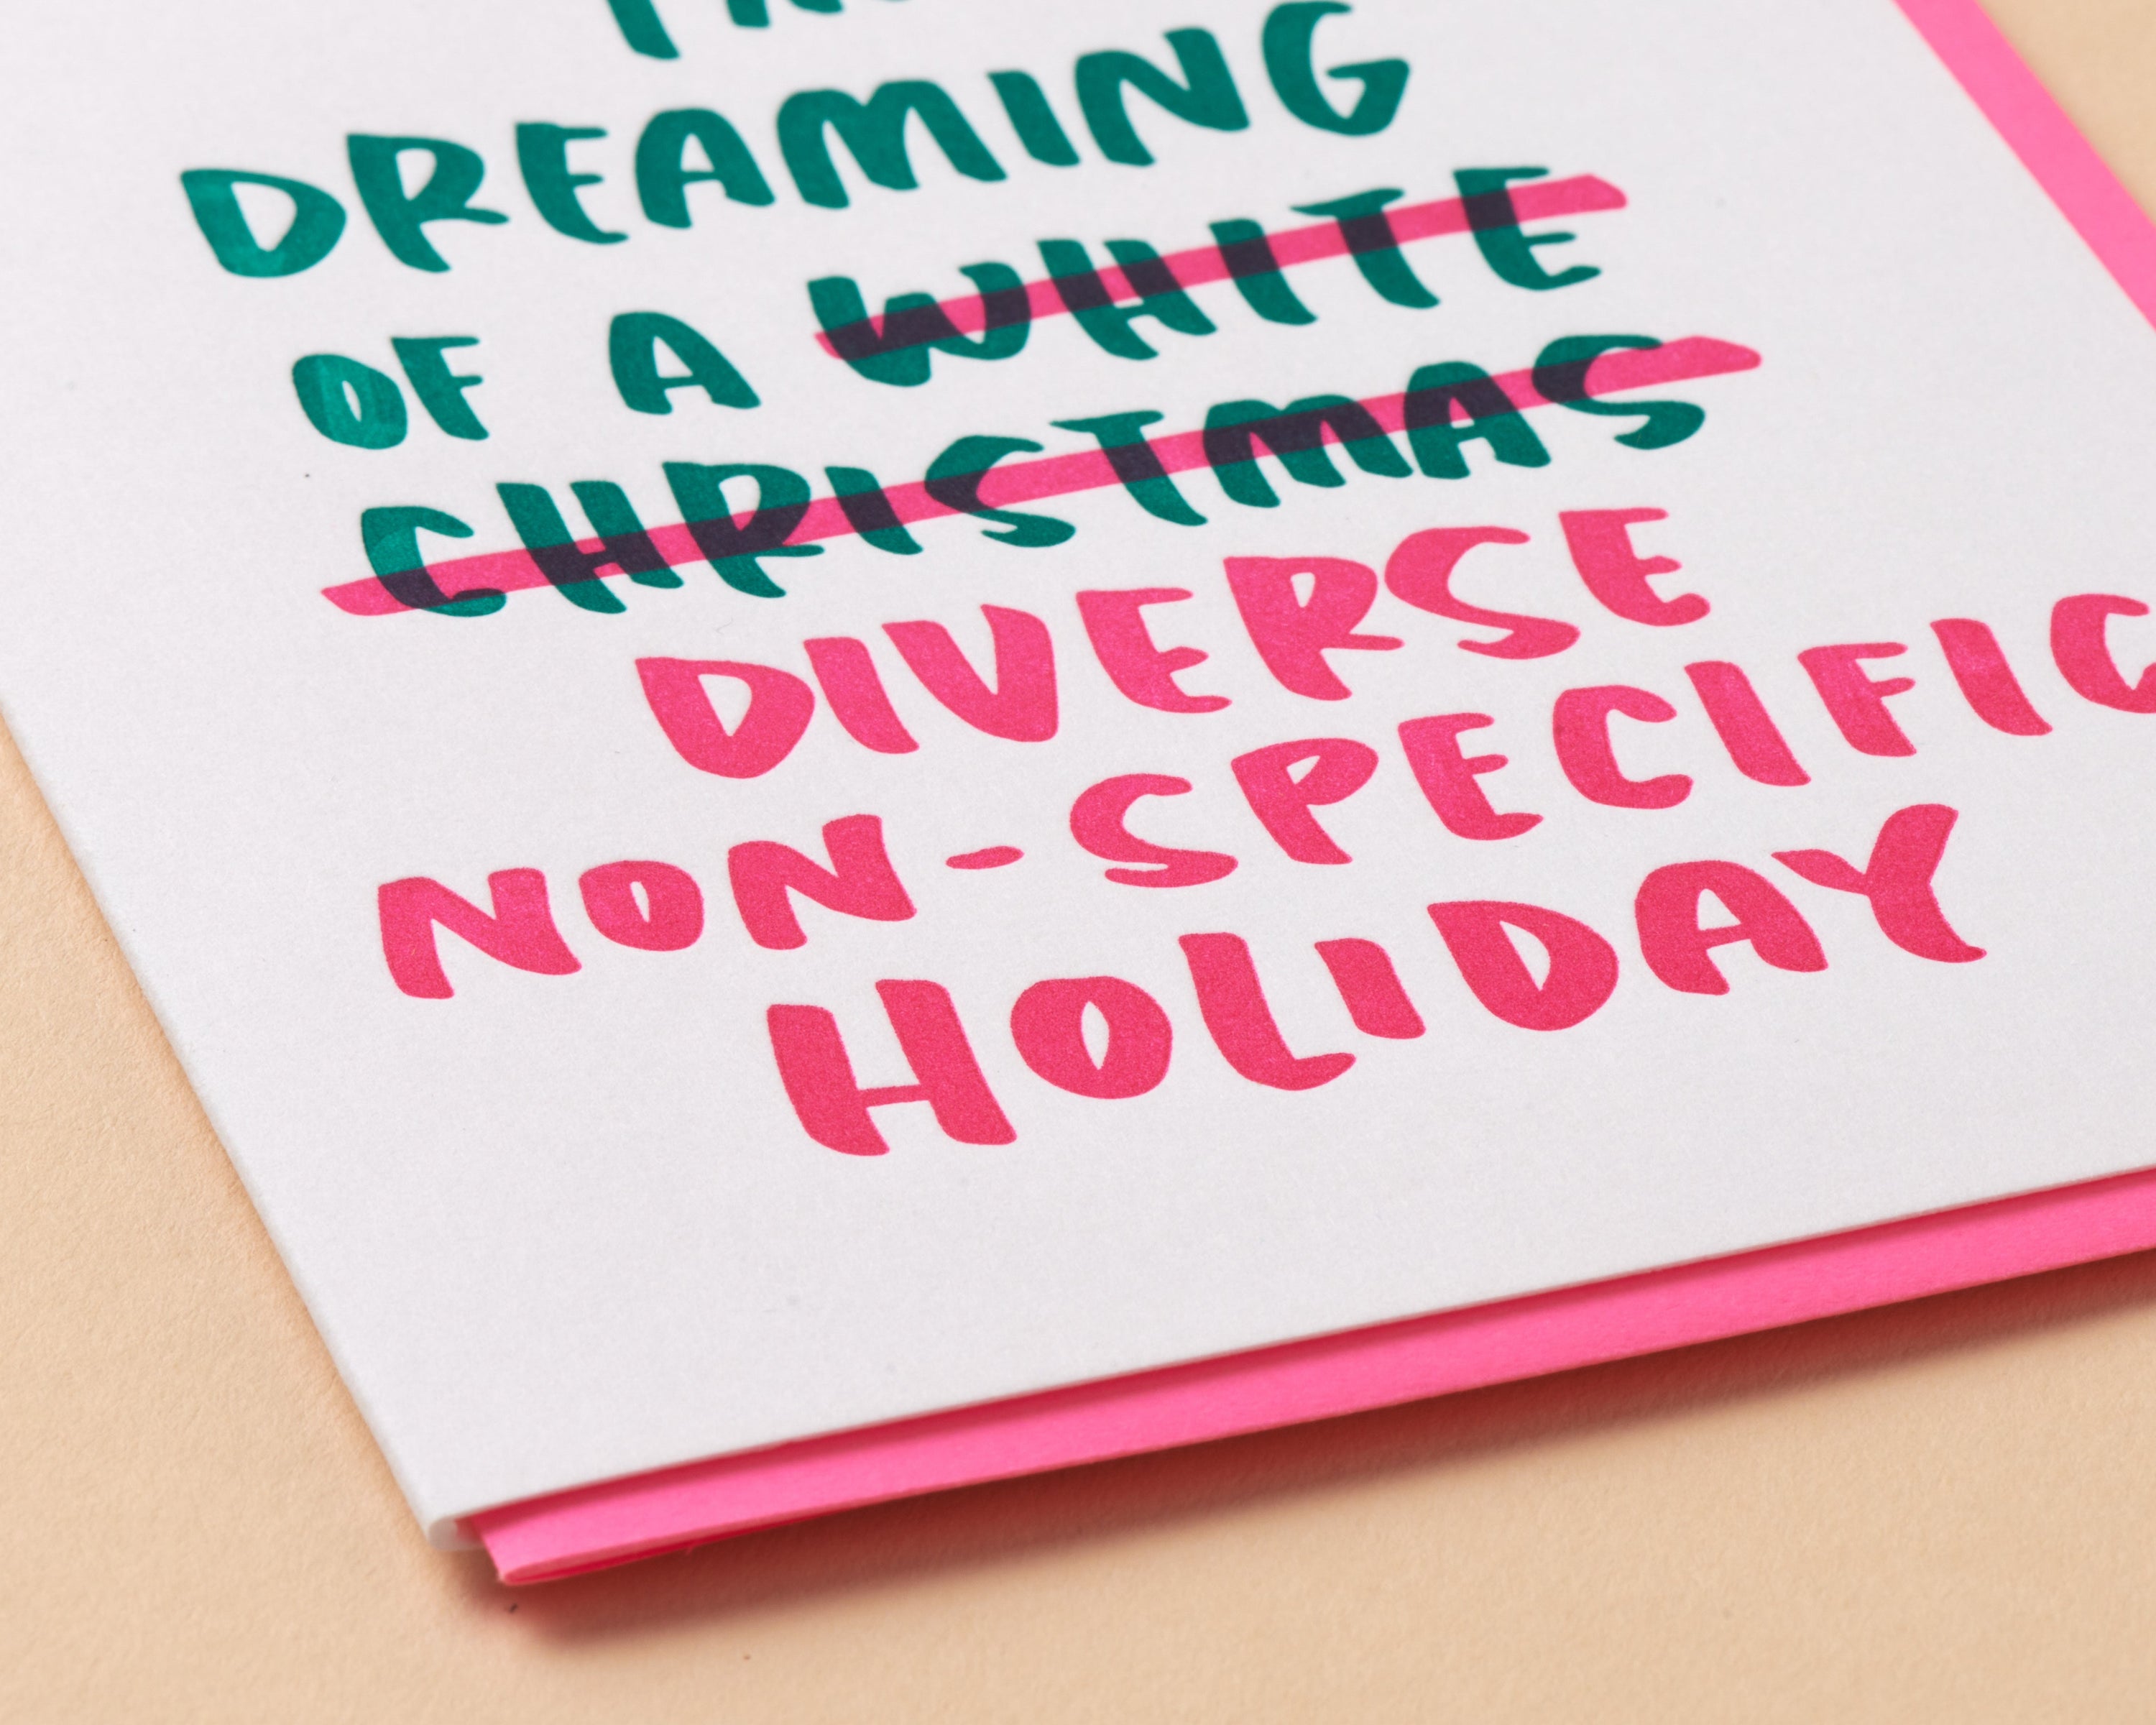 DREAMING
OF A WHITE
CHRISTMAS
DIVERSE
NON-SPECIFIC
HOLIDAY